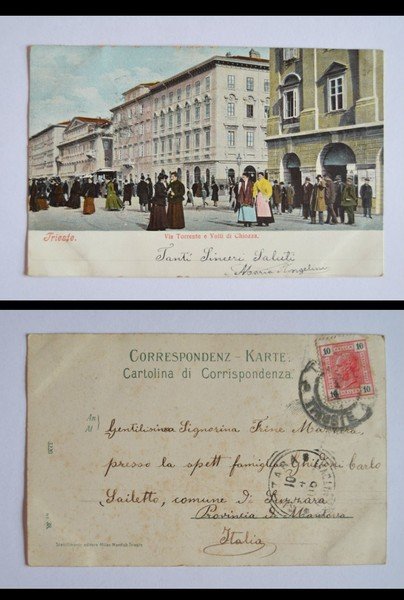 Trieste.
Via Torrente e Volti di Chiozza.
Tanti Sinceri Saluti
Mario Angelini
CORRESPONDENZ - KARTE.
Cartolina di Corrispondenza.
10 10
10 10
TRIESTE
Gentilissima Signorina
presso la spett famiglia Carlo
Sailetto, comune di Suzzara
Provincia di Mantova
Italia